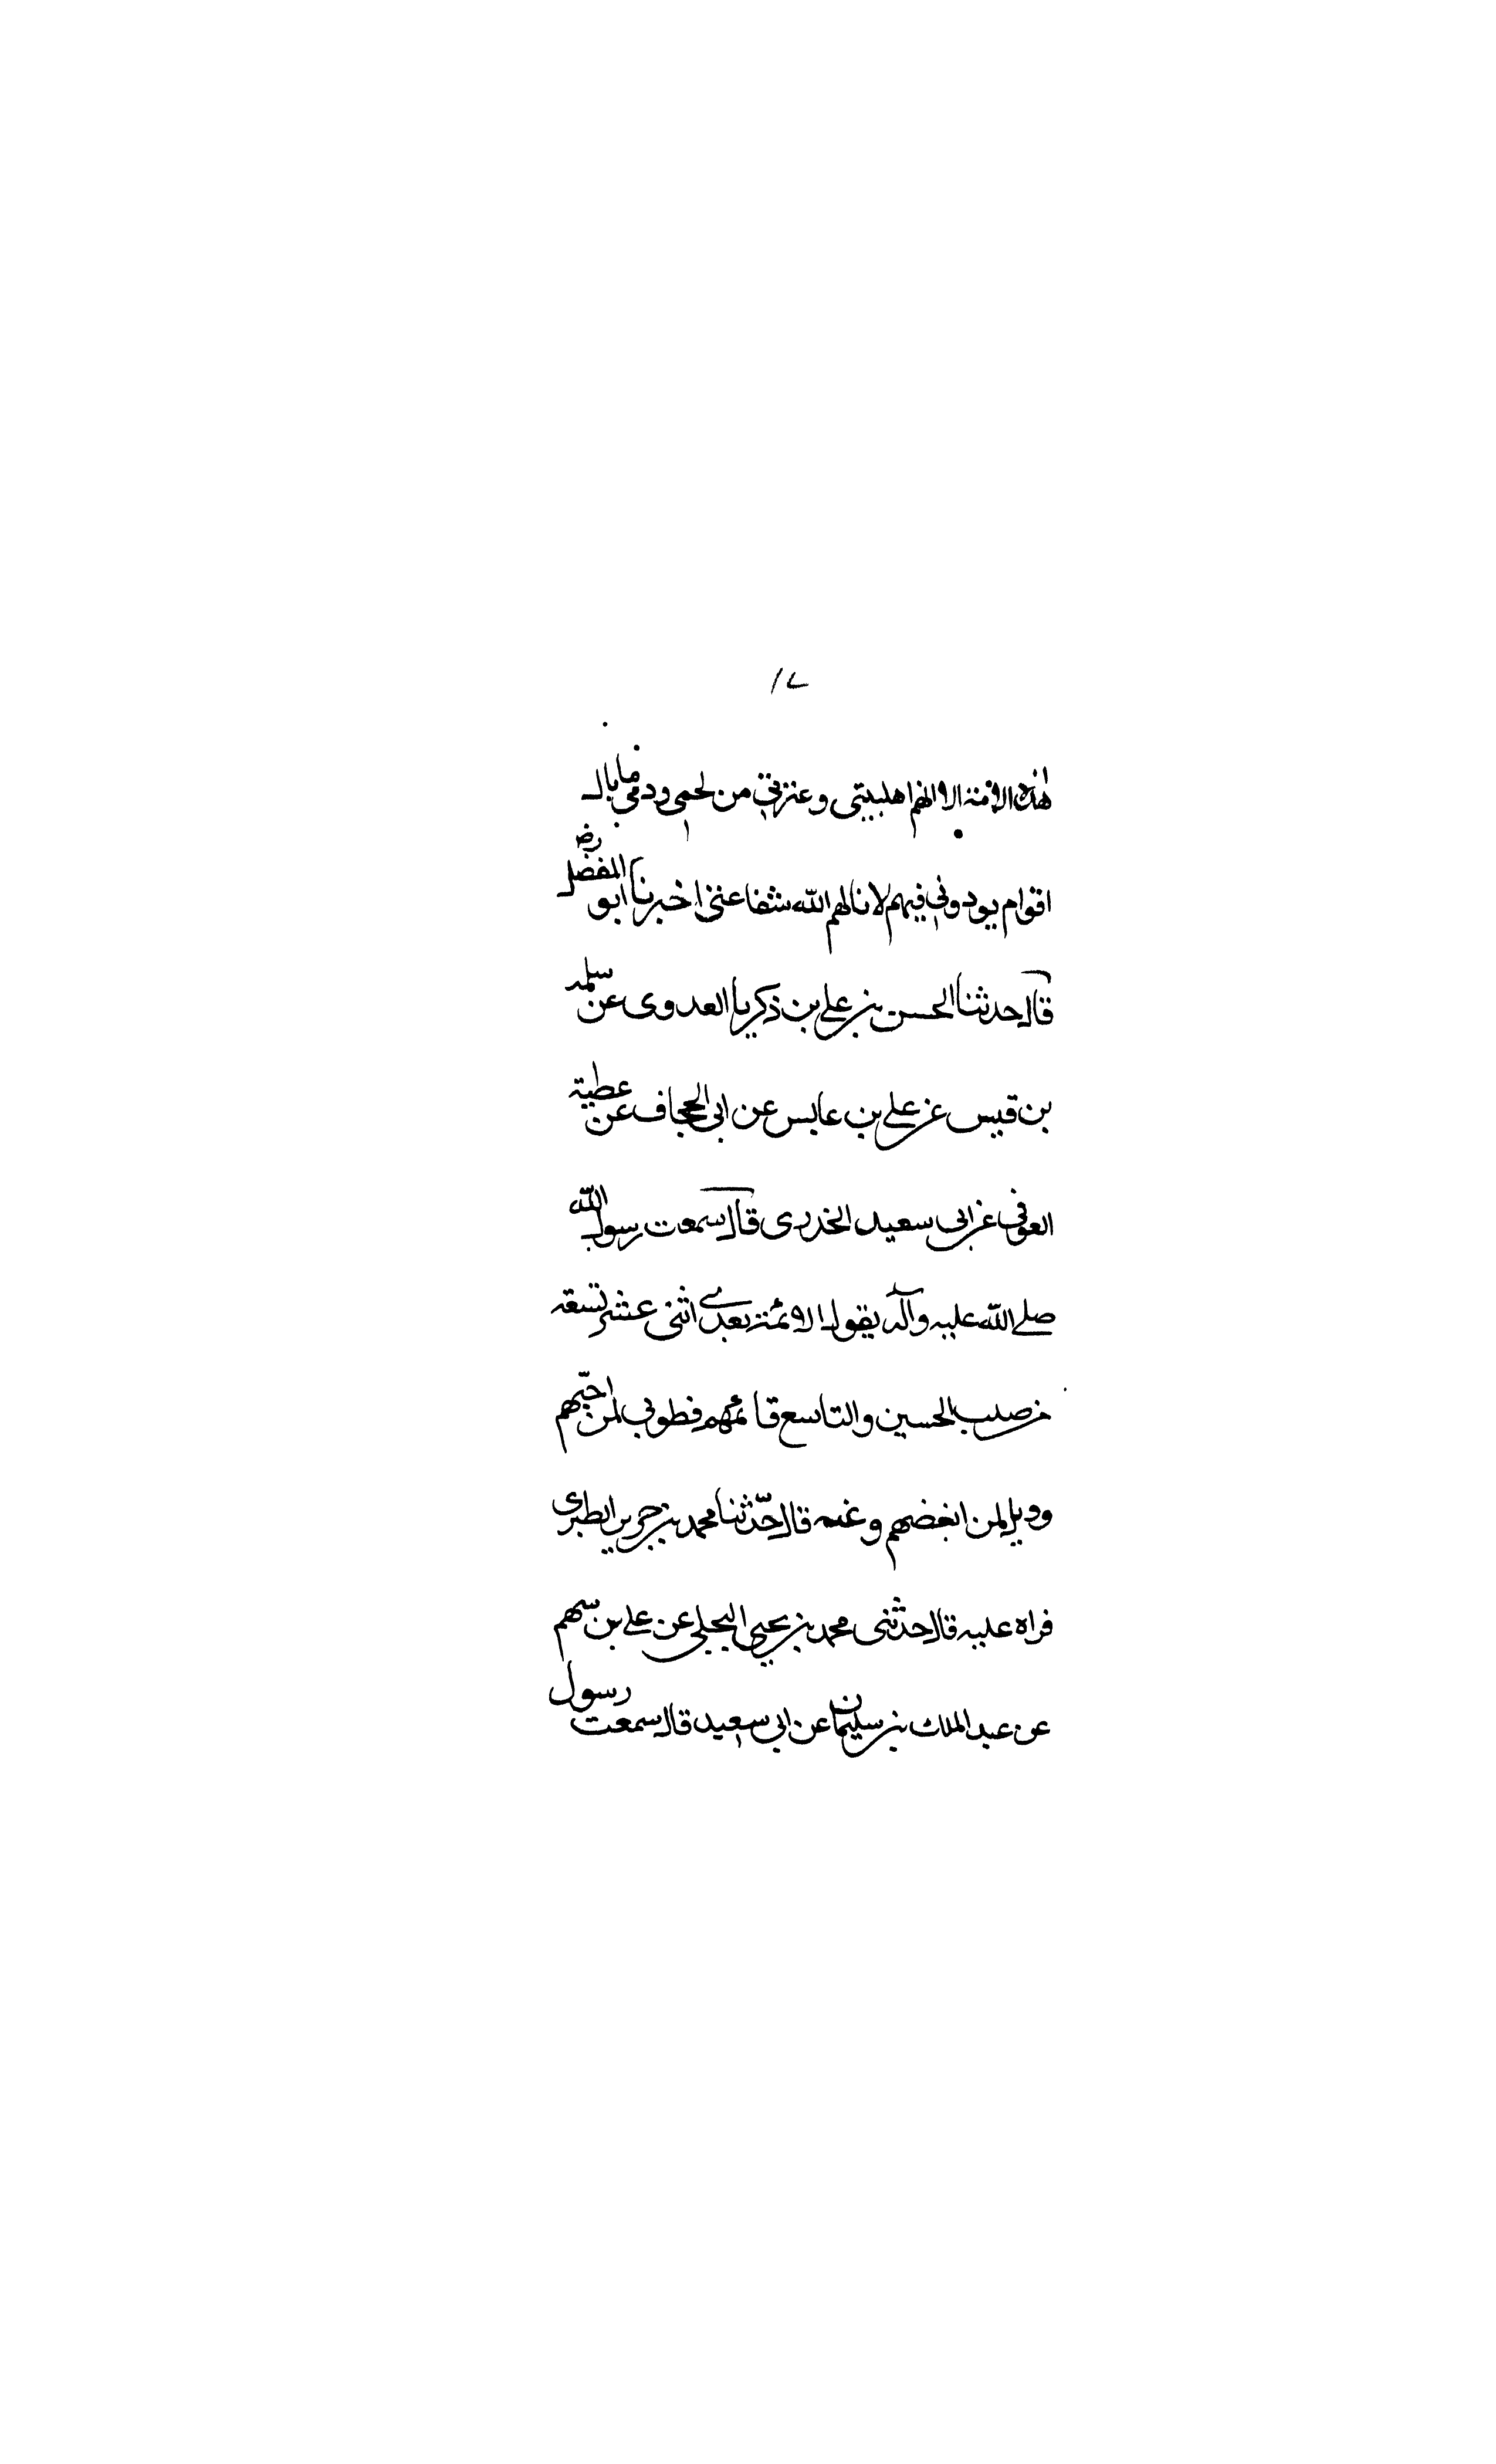 هذه الامة الا انهم اهلبيتي وعترتي من لحمي ودمي ما بال
اقوام يودوني فيهم لا نالهم الله شفاعتي اخبرنا ابو المفضل رض
قال حدثنا الحسن بن علي بن ذكريا العدوى عن سلمه
بن قيس عن علي بن عابس عن ابي الحجاف عن عطية
العوفي عن ابي سعيد الخدرى قال سمعت رسول الله
صلى الله عليه وآله يقول الائمة بعدي اثنى عشر تسعة
من صلب الحسين والتاسع قائمهم فطوبى لمن احبهم
وويل لمن ابغضهم وعنه قال حدّثنا محمد بن جرير الطبرى
قراه عليه قال حدثنى محمد بن يحيى البجلي عن علي بن سهم
عن عبد الملك بن سليمان عن ابي سعيد قال سمعت رسول